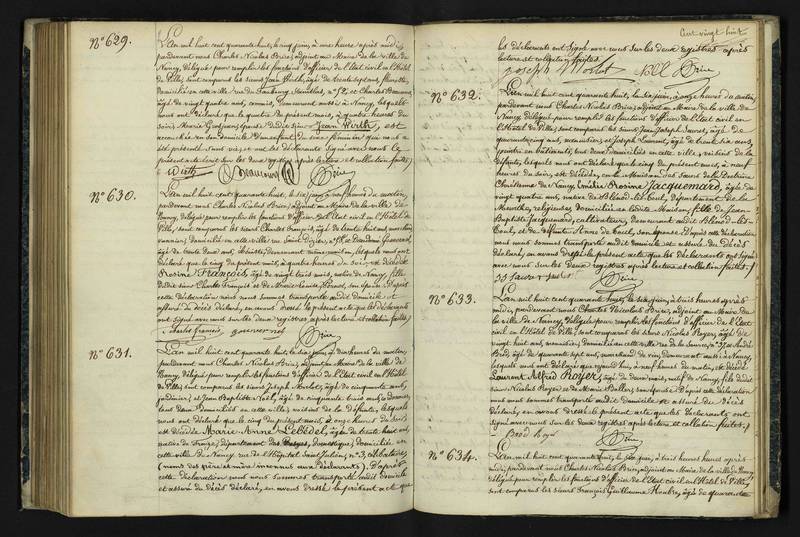 N° 629.
L'an mil huit cent quarante huit, le cinq juin, à une heure après midi,
pardevant nous Charles Nicolas Brice, adjoint au Maire de la ville de
Nancy, délégué pour remplir les fonctions d'officier de l'État civil en l'Hôtel
de Ville, sont comparus les sieurs Jean Wirth, âgé de trente sept ans,
domicilié en cette ville rue du faubourg Stanislas, n° 52, et Charles
âgé de vingt quatre ans, commis, demeurant aussi à Nancy, lesquels
nous ont déclaré que le quatre du présent mois, à quatre heures du
soir, Marie épouse dudit sieur Jean Wirth, est
accouchée en son domicile d'un enfant du sexe féminin qui nous a
été présenté sans vie, et ont les déclarants signé avec nous le
présent acte écrit sur les deux registres après lecture et collation faites.
Wirth Brice
N° 630.
L'an mil huit cent quarante huit, le six juin, à neuf heures du matin,
pardevant nous Charles Nicolas Brice, adjoint au Maire de la ville de
Nancy, délégué pour remplir les fonctions d'officier de l'État civil en l'Hôtel de
Ville, sont comparus les sieurs Charles François, âgé de trente huit ans,
vannier, domicilié en cette ville rue Saint Dizier, et
âgé de trente deux ans, ébéniste, demeurant même maison, lesquels nous ont
déclaré que le cinq du présent mois, à quatre heures du soir, est décédée
Rosine François, âgée de vingt trois mois, native de Nancy, fille
dudit sieur Charles François et de Marie Louise son épouse. D'après
cette déclaration nous nous sommes transporté audit domicile et
assuré du décès déclaré, en avons dressé le présent acte que les déclarants
ont signé avec nous sur les deux registres après lecture et collation faites.
Charles François Brice
N° 631.
L'an mil huit cent quarante huit, le six juin, à dix heures du matin,
pardevant nous Charles Nicolas Brice, adjoint au Maire de la ville de
Nancy, délégué pour remplir les fonctions d'officier de l'État civil en l'Hôtel
de Ville, sont comparus les sieurs Joseph âgé de cinquante ans,
jardinier, et Jean Baptiste Noël, âgé de cinquante trois ans,
tous deux domiciliés en cette ville, voisins de la défunte, lesquels
nous ont déclaré que le cinq du présent mois, à onze heures du soir
est décédée Marie Anne Lebédel, âgée de trente huit ans,
native de département des Vosges, domestique, domiciliée en
cette ville de Nancy, rue de l'Hôpital Saint Julien, n° 3, célibataire,
(noms des père et mère inconnus aux déclarants). D'après
cette déclaration nous nous sommes transporté audit domicile
et assuré du décès déclaré, en avons dressé le présent acte que
Cent vingt huit
les déclarants ont signé avec nous sur les deux registres après
lecture et collation faites.
Joseph Noël Brice
N° 632.
L'an mil huit cent quarante huit, le six juin, à onze heures du matin,
pardevant nous Charles Nicolas Brice, adjoint au Maire de la ville de
Nancy, délégué pour remplir les fonctions d'officier de l'État civil en
l'Hôtel de Ville, sont comparus les sieurs Jean Joseph âgé de
quarante cinq ans, menuisier, et Joseph Laurent, âgé de trente six ans,
peintre en bâtiments, tous deux domiciliés en cette ville, voisins de la
défunte, lesquels nous ont déclaré que le cinq du présent mois, à neuf
heures du soir, est décédée, en la Maison des Sœurs de la Doctrine
Chrétienne de Nancy, Rosine Jacquemard, âgée de
vingt quatre ans, native de Blénod-lès-Toul, département de la
Meurthe, religieuse, domiciliée en ladite Maison, fille de Jean-
Baptiste Jacquemard, cultivateur, demeurant audit Blénod-lès-
Toul, et de défunte Anne son épouse. D'après cette déclaration
nous nous sommes transporté audit domicile et assuré du décès
déclaré, en avons dressé le présent acte que les déclarants ont signé
avec nous sur les deux registres après lecture et collation faites.
Brice
N° 633.
L'an mil huit cent quarante huit, le six juin, à trois heures après
midi, pardevant nous Charles Nicolas Brice, adjoint au Maire de
la ville de Nancy, délégué pour remplir les fonctions d'officier de l'État
civil en l'Hôtel de Ville, sont comparus les sieurs Nicolas Royer, âgé de
vingt huit ans, menuisier, domicilié en cette ville rue de la Source, et André
Brod, âgé de quarante sept ans, marchand de vin, demeurant aussi à Nancy,
lesquels nous ont déclaré que à neuf heures du matin, est décédé
Laurent Alfred Royer, âgé de deux mois, natif de Nancy, fils dudit
sieur Nicolas Royer et de Marie son épouse. D'après cette déclaration
nous nous sommes transporté audit domicile et assuré du décès
déclaré, en avons dressé le présent acte que les déclarants ont
signé avec nous sur les deux registres après lecture et collation faites.
Brod Royer Brice
N° 634.
L'an mil huit cent quarante huit, le six juin, à trois heures après
midi, pardevant nous Charles Nicolas Brice, adjoint au Maire de la ville de Nancy,
délégué pour remplir les fonctions d'officier de l'État civil en l'Hôtel de Ville,
sont comparus les sieurs François Guillaume âgé de quarante